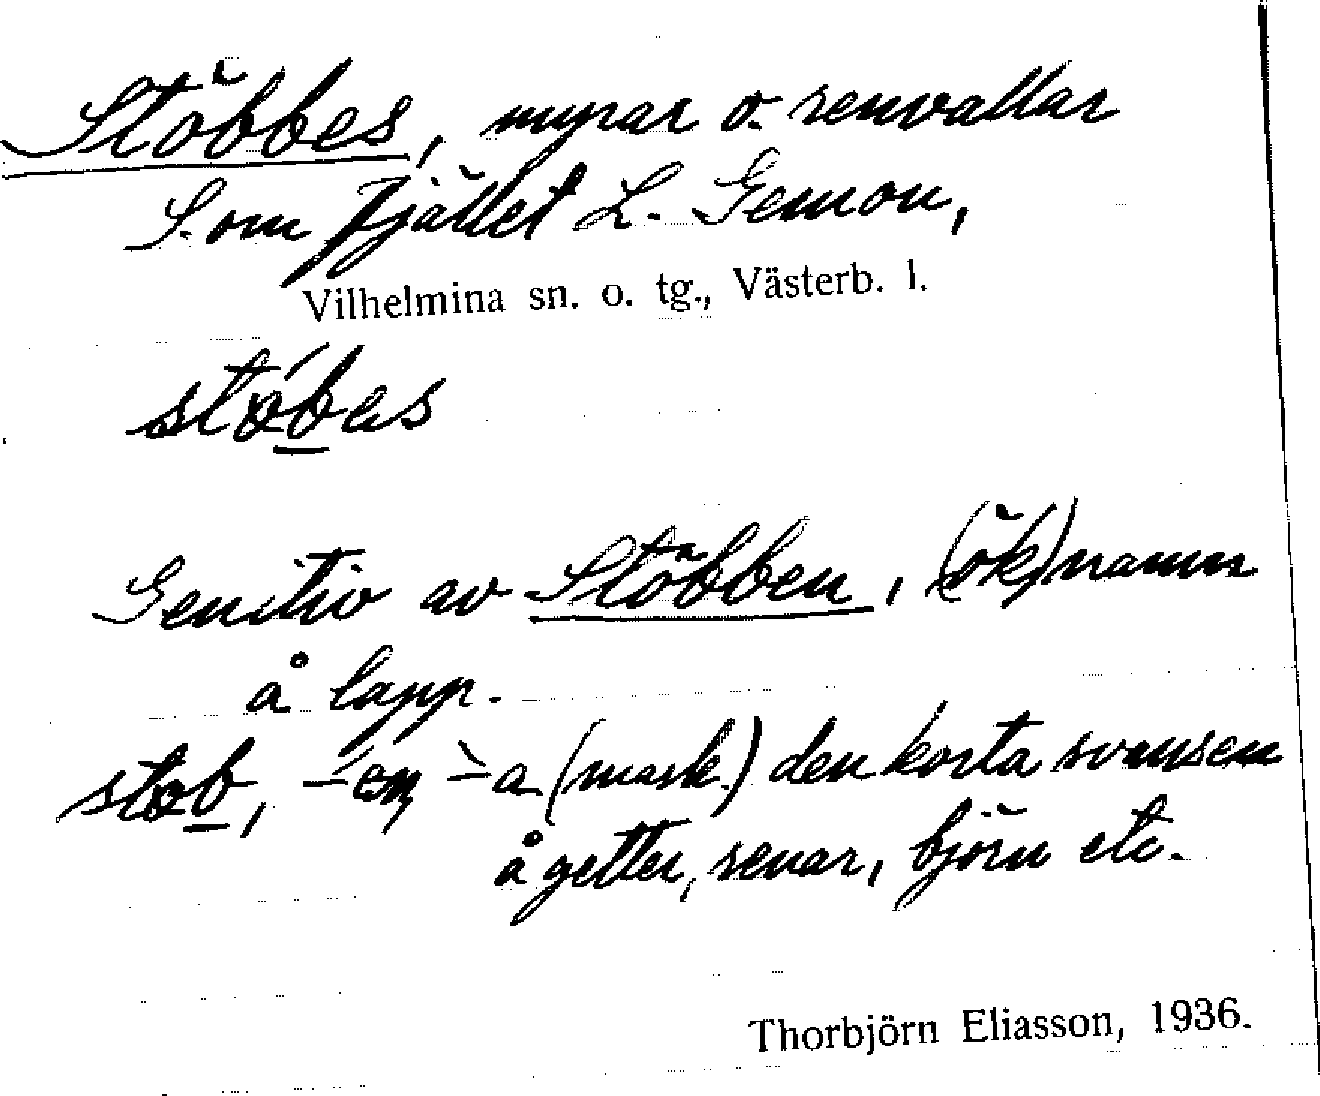 Stöbbes, myrar o. renvallar
S. om fjället L. Gemon,
Vilhelmina sn. o. tg., Västerb. l.
støbes
Genitiv av Stöbben, (ök)namn
å lapp.
støb, -en, -a (mask.) den korta svansen
å getter, renar, björn etc.
Thorbjörn Eliasson, 1936.